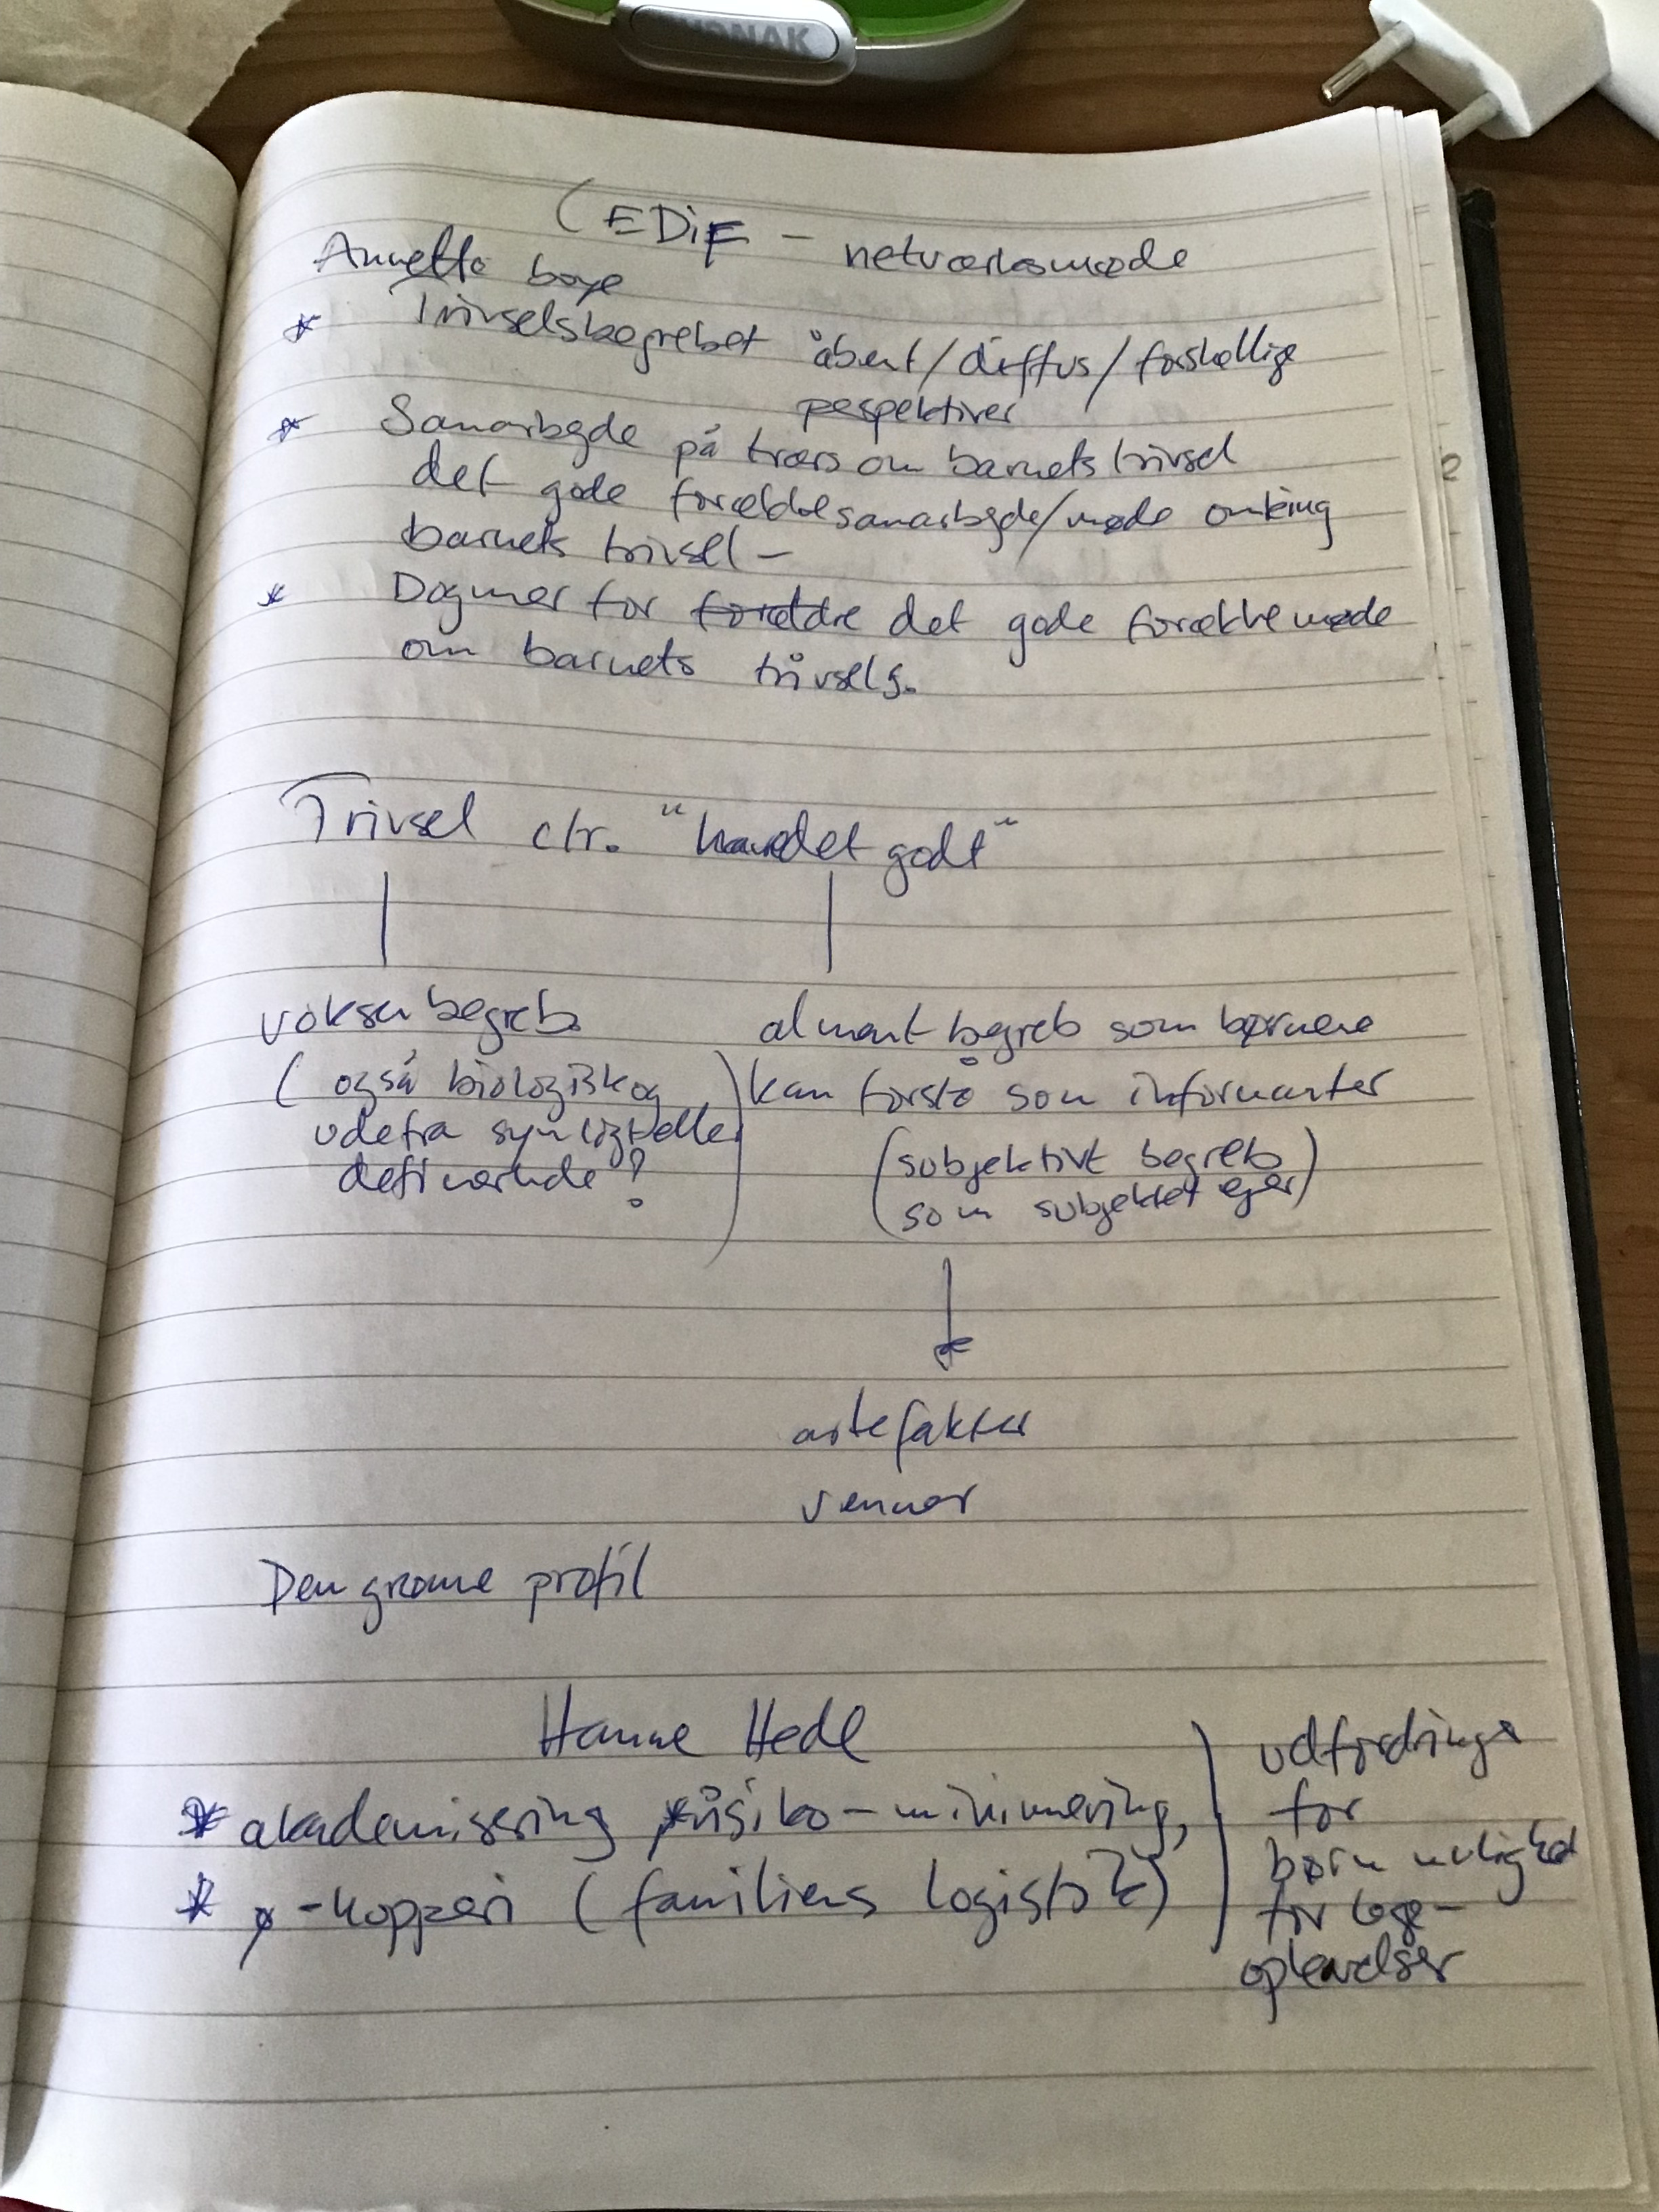 PHONAK
CEDiF - netværksmøde
Annette boye
* Trivselsbegrebet åbent/diffus/forskellige
pespektiver
* Samarbejde på tværs om barnets trivsel
det gode forældresamarbejde/møde omkring
barnets trivsel -
* Dogmer for forældre det gode forældremøde
om barnets trivsels.
Trivsel ctr. "have det godt"
voksenbegreb
(også biologisk og
udefra synligt eller
definerende?)
alment begreb som børnene
kan forstå som informanter
(subjektivt begreb
som subjektet ejer)
artefakter
venner
Den grønne profil
Hanne Hede
* akademisering, risiko-minimering,
* ø-hopperi (familiens logistik)
udfordringer
for
børn mulighed
for lege-
oplevelser